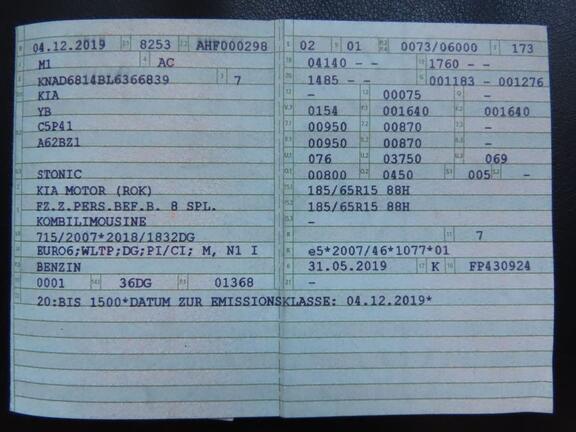 04.12.2019 8253 AHF000298
M1 AC
KNAD6814BL6366839 7
KIA
YB
C5P41
A62BZ1
STONIC
KIA MOTOR (ROK)
FZ.Z.PERS.BEF.B. 8 SPL.
KOMBILIMOUSINE
715/2007*2018/1832DG
EURO6;WLTP;DG;PI/CI; M, N1 I
BENZIN
0001 36DG 01368
02 01 0073/06000 173
04140 - - 1760 - -
1485 - - 001183 - 001276
- 00075 -
0154 001640 001640
00950 00870 -
00950 00870 -
076 03750 069
00800 0450 005 -
185/65R15 88H
185/65R15 88H
-
7
e5*2007/46*1077*01
31.05.2019 K FP430924
-
20:BIS 1500*DATUM ZUR EMISSIONSKLASSE: 04.12.2019*